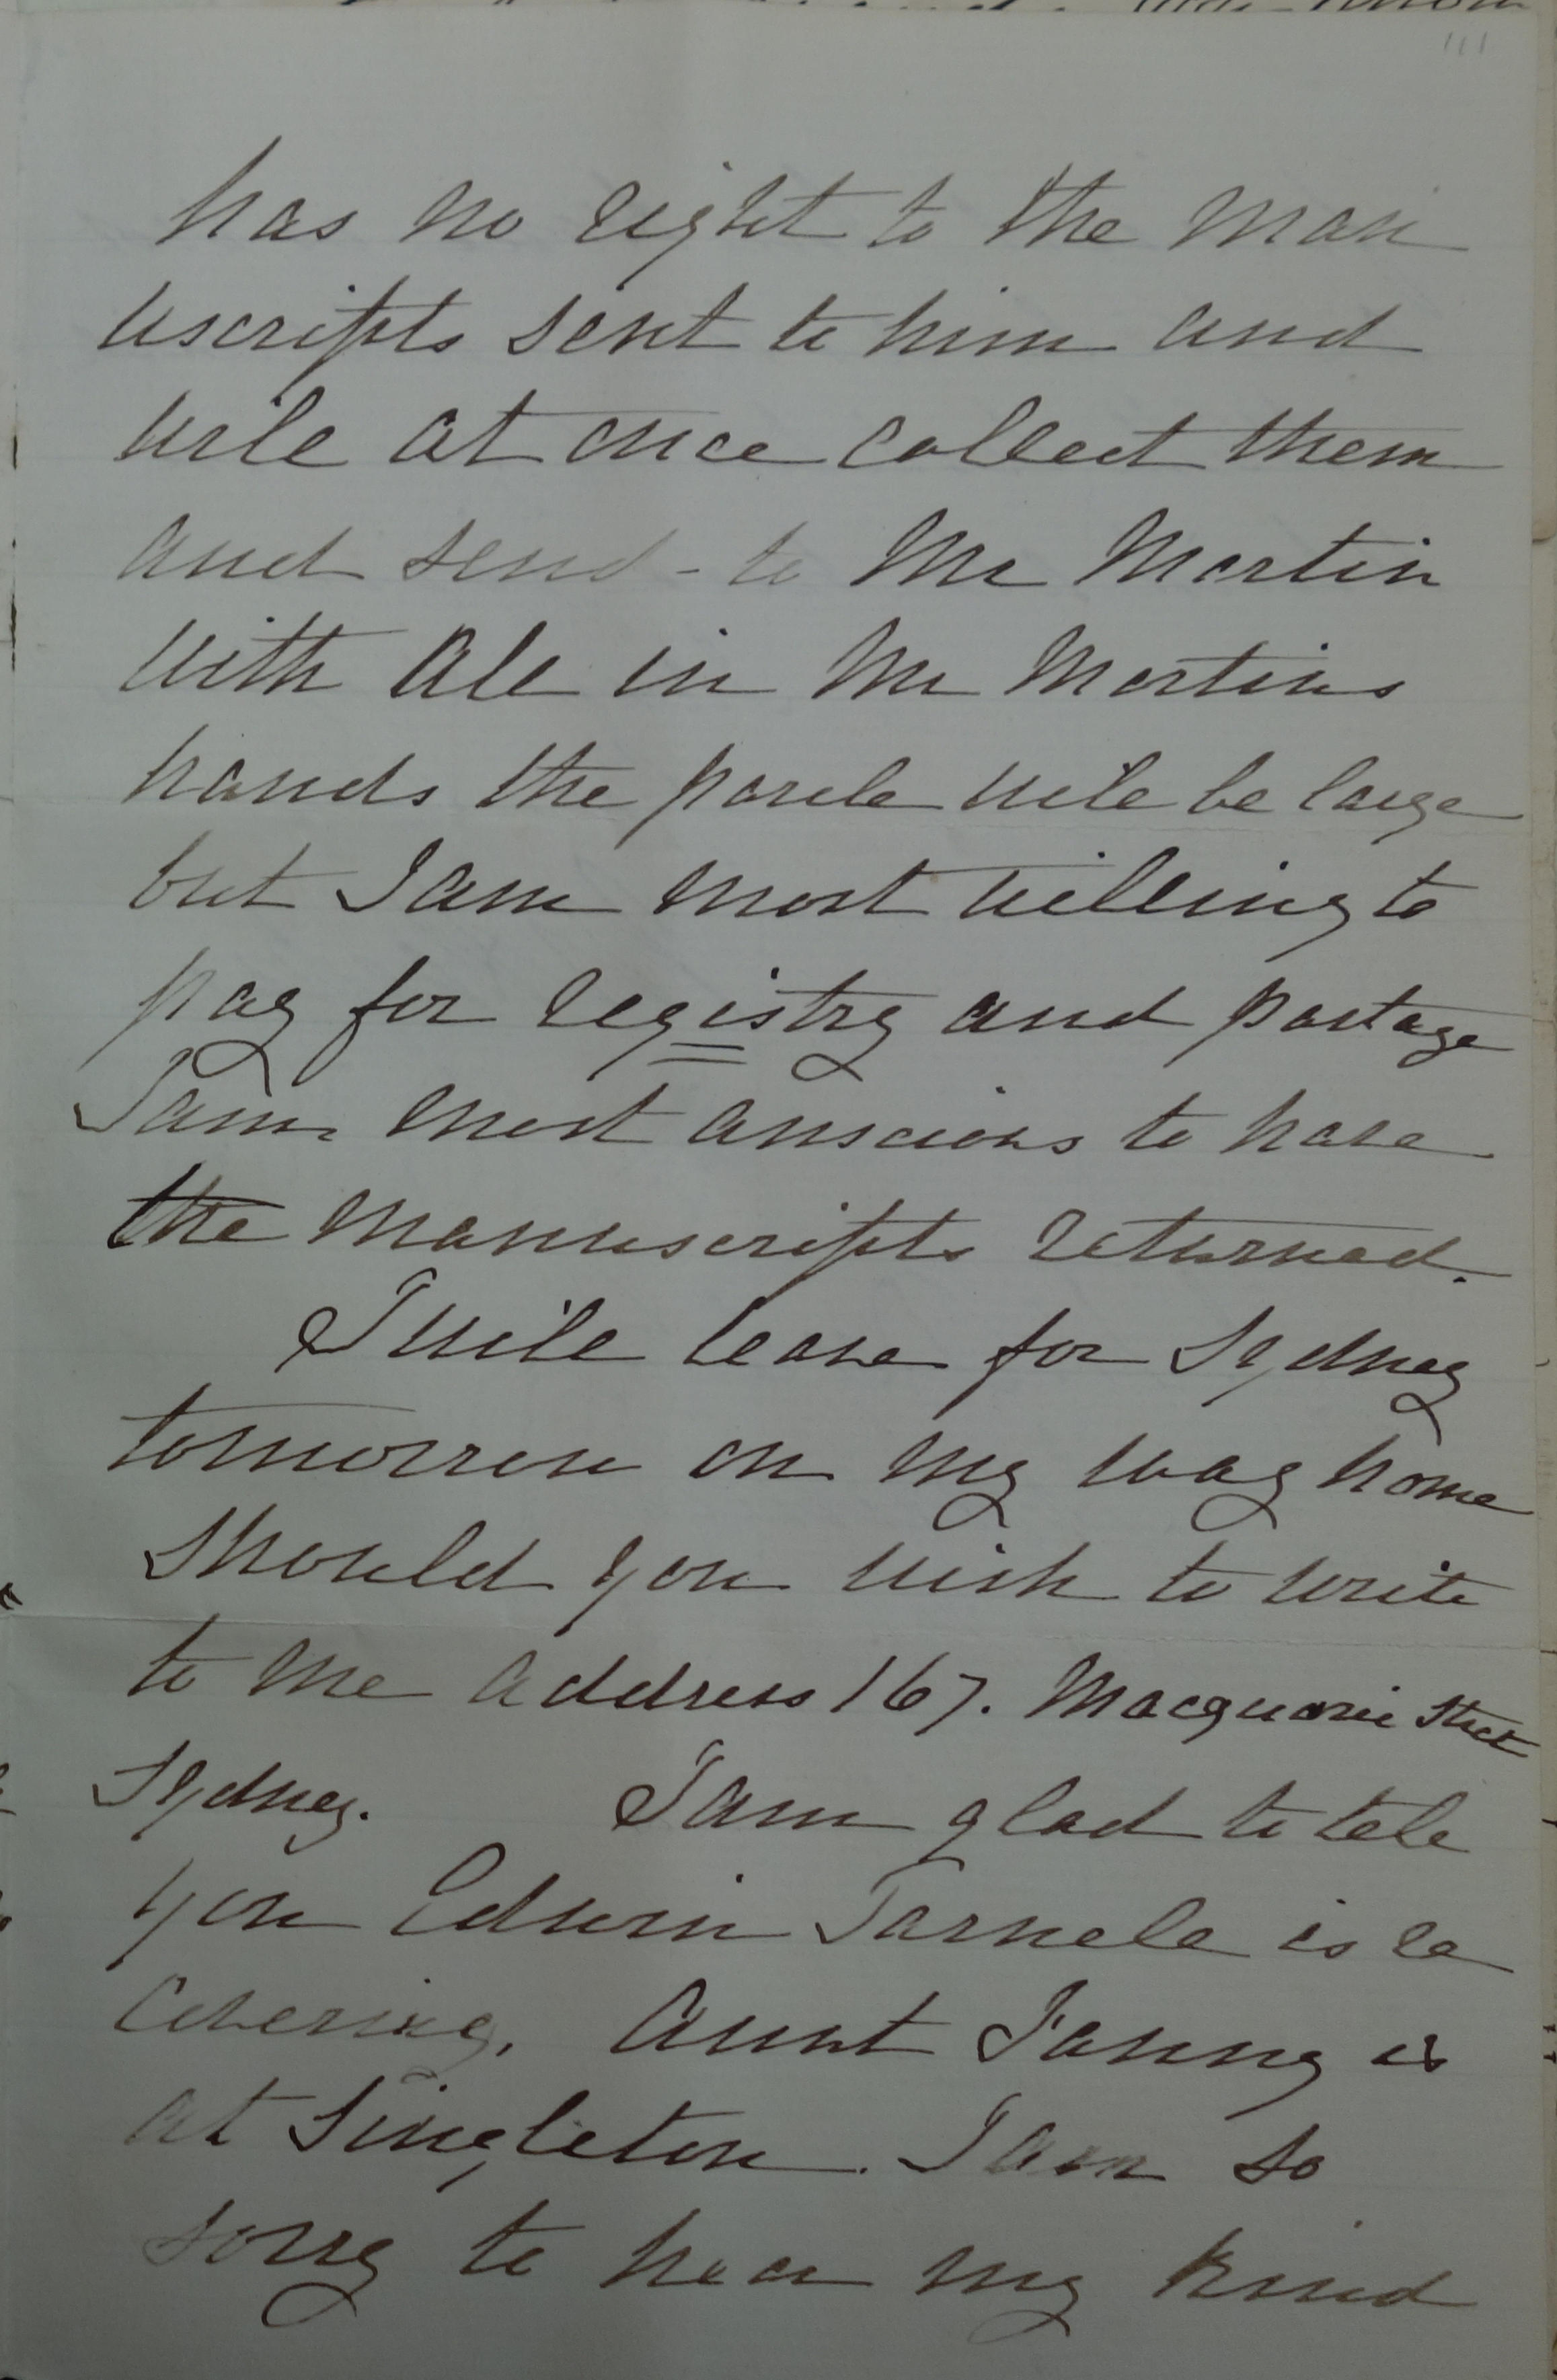 111
has no right to the man
uscripts sent to him and
will at once collect them
and send - to Mr Martin
with all in Mr Martins
hands the parcle will be large
but I am most willing to
pay for registry and postage
I am most anxcious to have
the manuscripts returned.
I will leave for Sydney
tomorrow on my way home
Should you wish to write
to me address 167. Macquarie Street
Sydney. I am glad to tell
you Edwin Farnele is re
covering. Aunt Fanny is
at Singleton. I am so
sorry to hear my kind